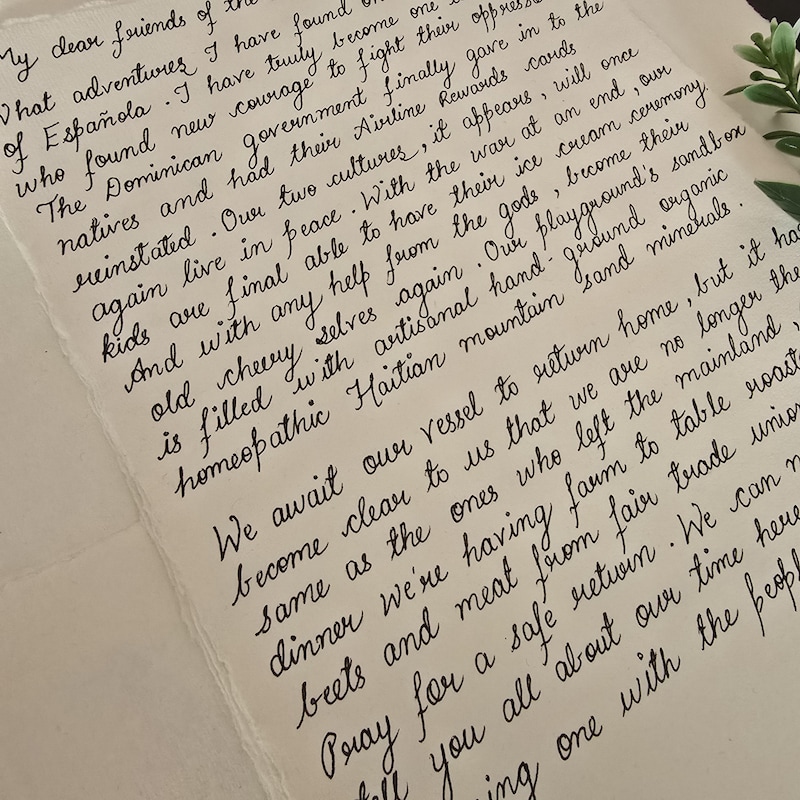 My dear friends of the
What adventures I have found on
of Española. I have truly become one
who found new courage to fight their oppress
The Dominican government finally gave in to the
natives and had their Airline Rewards cards
reinstated. Our two cultures, it appears, will once
again live in peace. With the war at an end, our
kids are final able to have their ice cream ceremony.
And with any help from the gods, become their
old cheery selves again. Our playground's sandbox
is filled with artisanal hand-ground organic
homeopathic Haitian mountain sand minerals.
We await our vessel to return home, but it ha
become clear to us that we are no longer the
same as the ones who left the mainland,
dinner we're having farm to table roast
beets and meat from fair trade union
Pray for a safe return. We can n
tell you all about our time here
ing one with the peopl